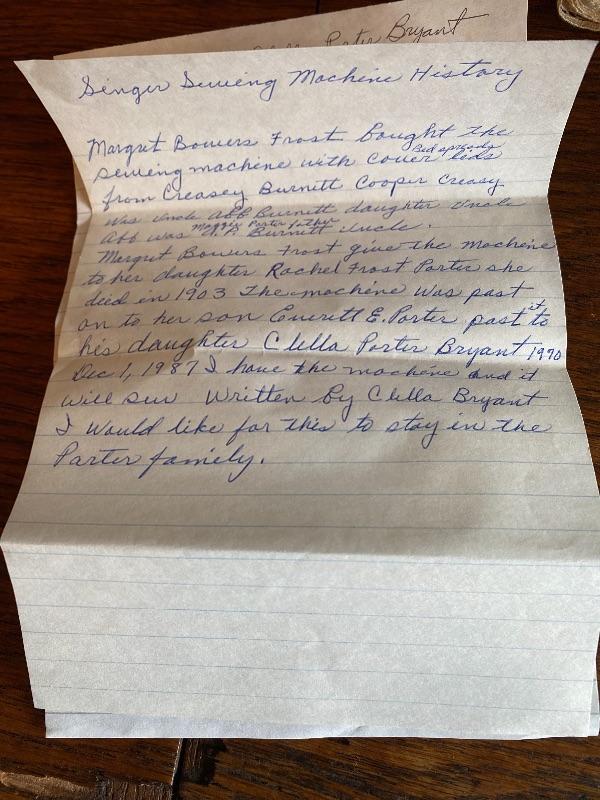 Porter Bryant
Singer Sewing Machine History
Margret Bowers Frost bought the
Bed spreads
sewing machine with cover lids
from Creasey Burnett Cooper Creasy
was Uncle Abb Burnett daughter Uncle
Maggie Porter father
Abb was A.P. Burnett Uncle.
Margret Bowers Frost give the machine
to her daughter Rachel Frost Porter she
died in 1903 The machine was past
on to her son Everett E. Porter past it to
his daughter Clella Porter Bryant 1970
Dec 1, 1987 I have the machine and it
will sew Written by Clella Bryant
I would like for this to stay in the
Porter family.